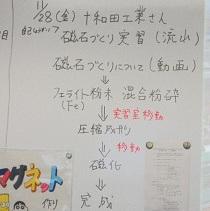 11/28(金) 十和田工業さん
磁石づくり 実習 (流山)
磁石づくりについて (動画)
↓
フェライト粉末 混合粉砕
(Fe)
↓ 実習室移動
圧縮
↓ 移動
磁化
↓
完成
マグネット
作り